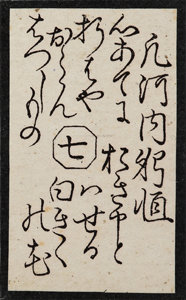 凡河内躬恒
心あてに
折はや
おらん
はつしもの
七
おきまと
はせる
白きく
の花